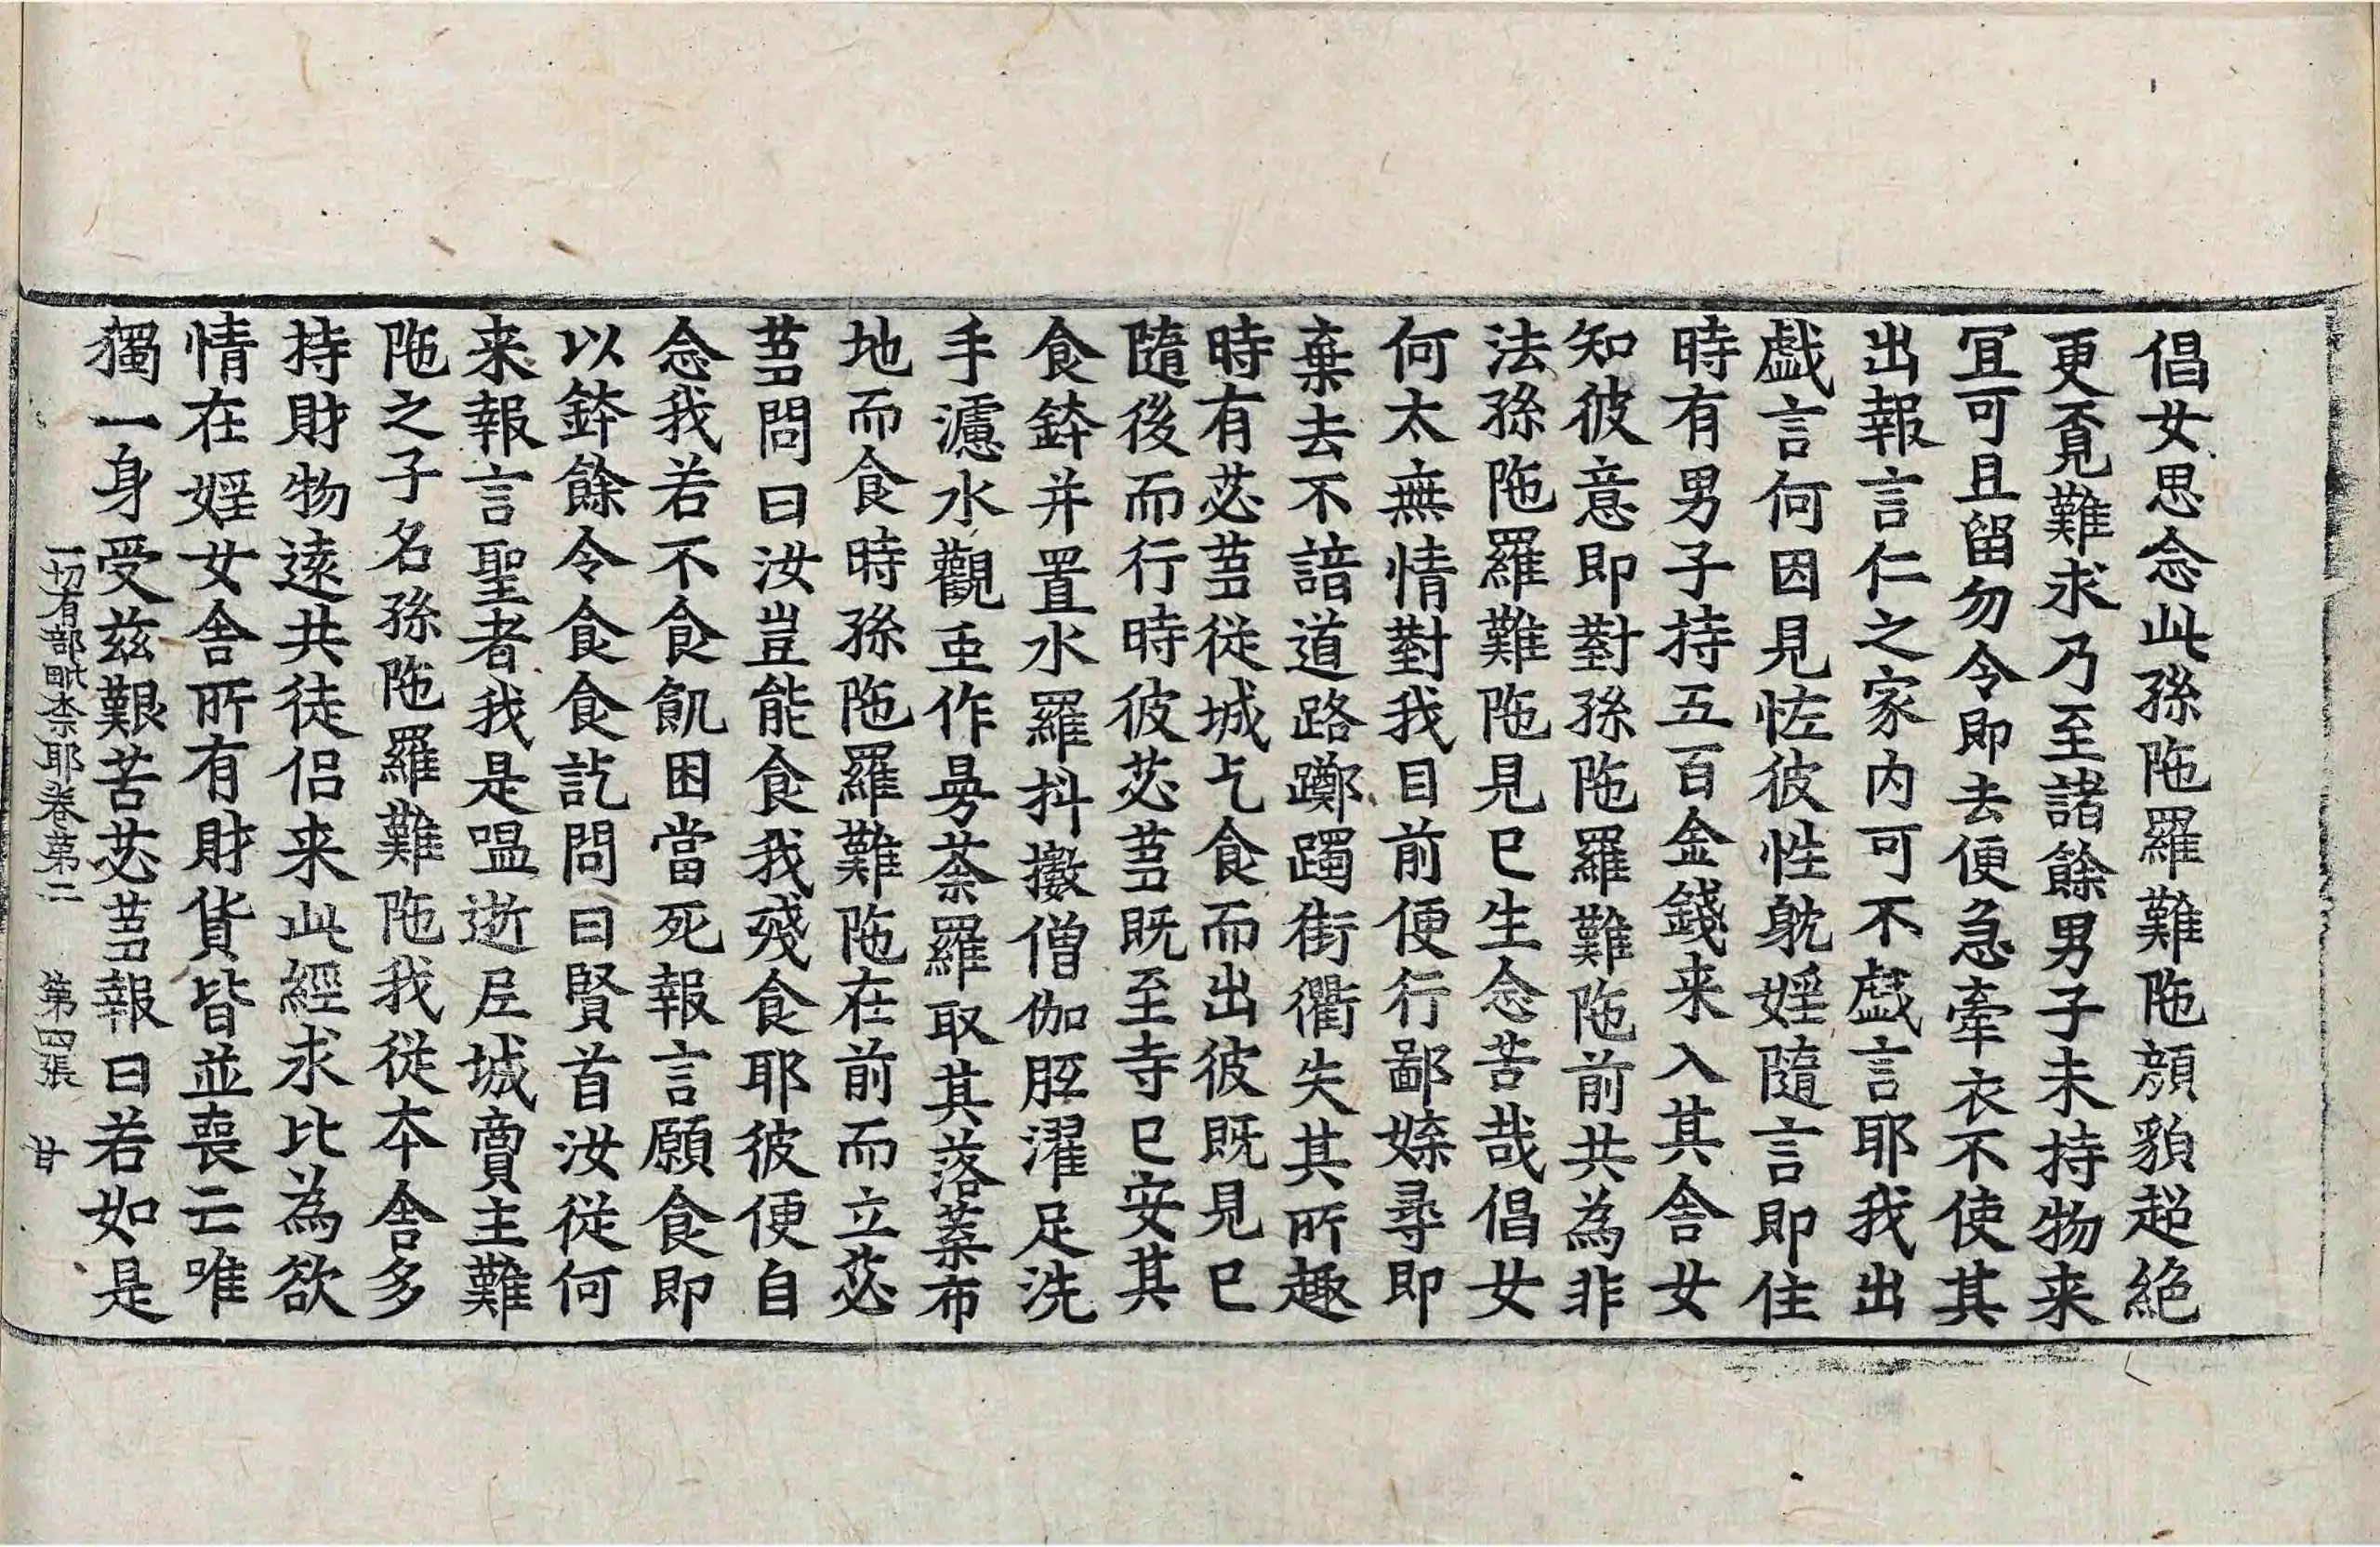 倡女思念此孫陁羅難陁顔貌超絶
更覔難求乃至諸餘男子未持物来
冝可且留勿令即去便急牽衣不使其
出報言仁之家内可不戱言耶我出
戱言何因見恠彼性躭婬隨言即住
時有男子持五百金錢来入其舎女
知彼意即對孫陁羅難陁前共為非
法孫陁羅難陁見巳生念苦哉倡女
何太無情對我目前便行鄙媟尋即
棄去不諳道路躑躅街衢失其所趣
時有苾蒭従城乞食而出彼既見巳
隨後而行時彼苾蒭既至寺巳安其
食鉢并置水羅抖擻僧伽胝濯足洗
手濾水觀虫作曼荼羅取其落葉布
地而食時孫陁羅難陁在前而立苾
蒭問曰汝豈能食我殘食耶彼便自
念我若不食飢困當死報言願食即
以鉢餘令食食訖問曰賢首汝従何
来報言聖者我是嗢逝尼城賣主難
陁之子名孫陁羅難陁我従本舎多
持財物遠共徒侣来此經求比為欲
情在婬女舎所有財貨皆並喪亡唯
獨一身受兹艱苦苾蒭報曰若如是
一切有部毗奈耶卷第二　第四張　甘